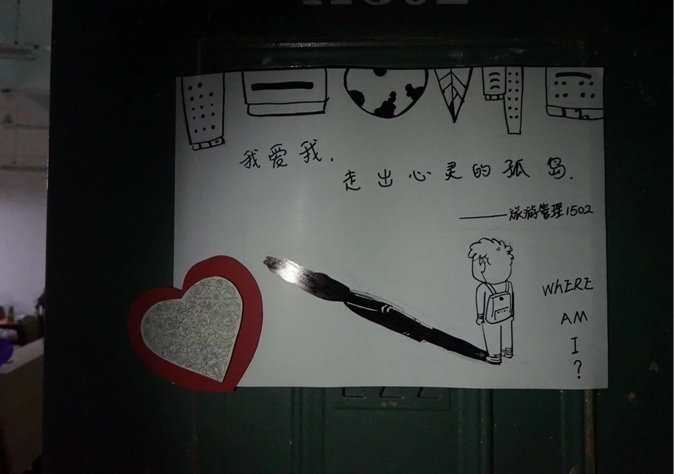 我爱我，
走出心灵的孤岛.
——旅游管理1502
WHERE
AM
I
?